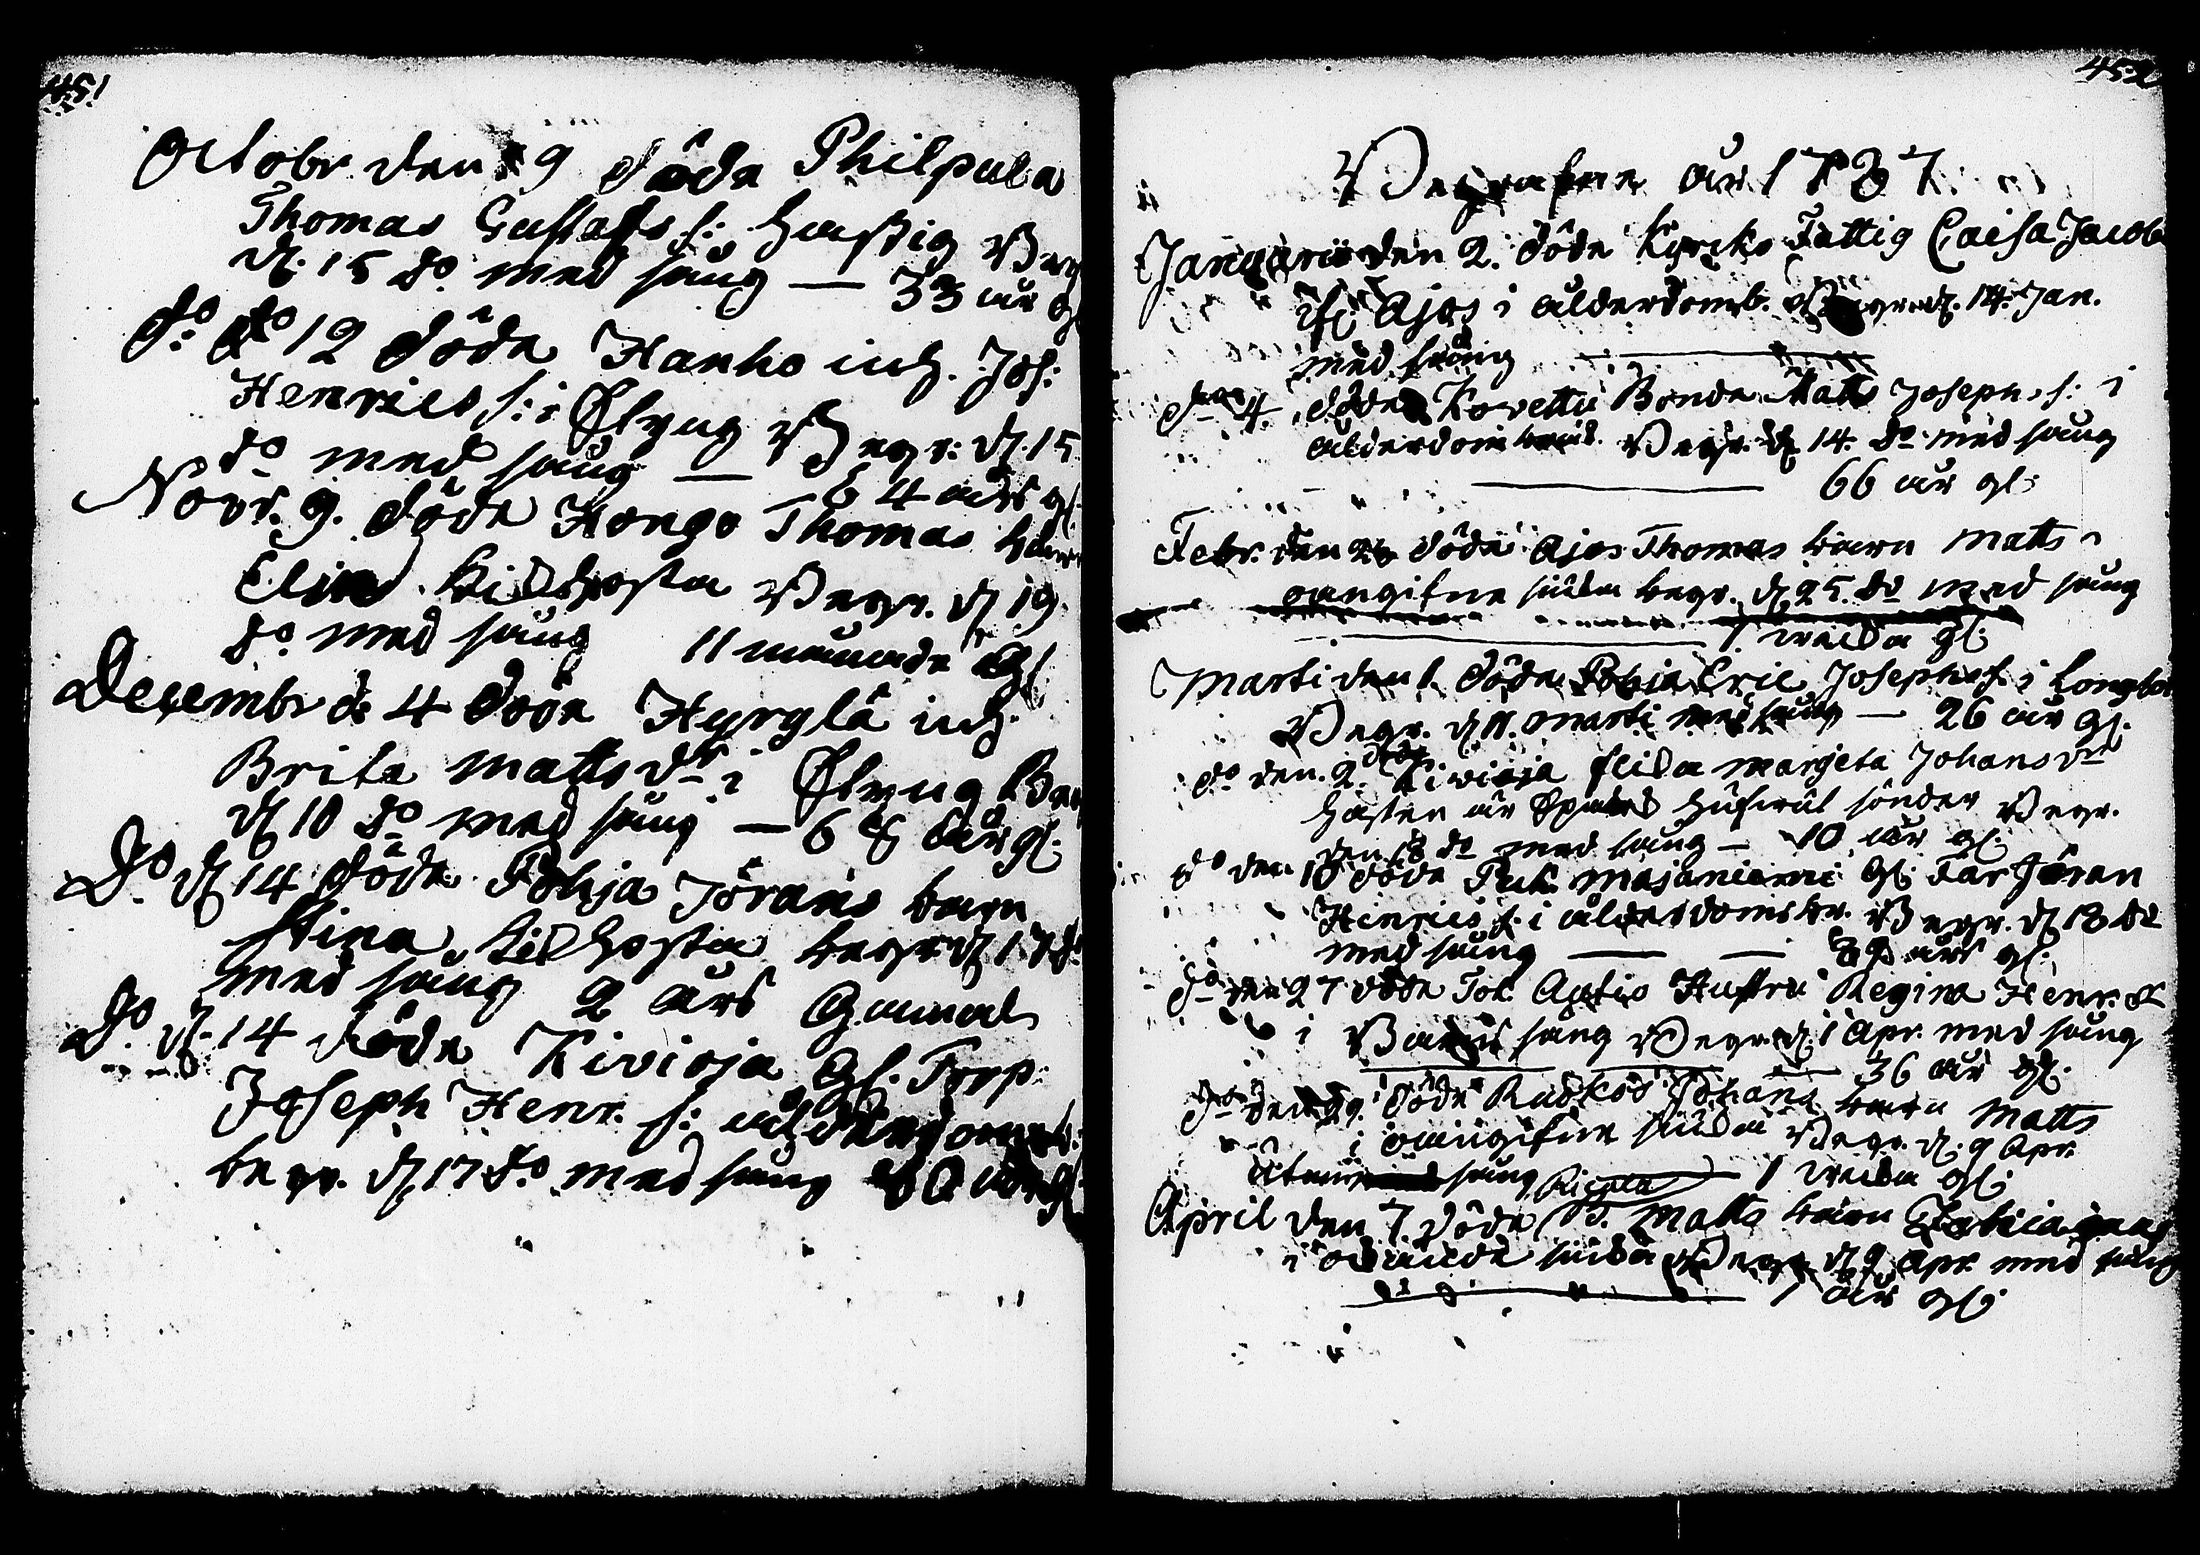 451
Octobr den 9 döde Philpula
Thomas Gustafs s: hastig Beg
d. 15 do med sång — 33 år gl
do do 12 döde Hanho inh. Jos:
Henrics s: i Begr: d. 15
do med sång — 64 års gl.
Novr. 9. döde Kongo Thomas barn
Elin Kikhosta Begr. d 19.
do med sång 11 månade gl.
Decembr d 4 döde Hyrylä inh.
Brita Matts dr i Beg
d 10 do med sång — 68 år gl.
Do d 14 döde Pohja Jörans barn
Stina Kikhosta begr d 17 do
med sång 2 års Gammal
Do d. 14 döde Kivioja gl. Torp.
Joseph Henr. s: ålderdomb.
begr. d 17 do med sång 80 år gl.
452
Begrafne år 1787.
Januarii den 2. döde Kyrko Fattig Caisa Jacobs
Ajos i ålderdomb. Begr. d. 14. Jan.
med sång
do 4. döde Bonde Matts Josephs s: i
ålderdom Begr. d 14. do med sång
66 år gl.
Febr. den döde Ajos Thomas barn Matts i
oangifne siuka begr. d 25. do med sång
1 wecka gl.
Marti den 1. döde Pohja Eric Josephs s. i
Begr. d 11. Marti med sång — 26 år gl.
do den 9 döde Kivioja Margeta Johans dr
sönder Begr.
den 18 do med sång — 10 år gl.
do den 10 döde Majaniemi gl. Far Jöran
Hinrics s. i ålderdoms br. Begr. d 18 do
med sång — — års gl.
do den 27 döde Joh. Hustru Regina Henr. dr
i Barn säng Begr. d. 1 Apr. med sång
36 år gl.
do den 29. döde Johans barn Matts
i oangifne siuka Begr. d. 9 Apr.
utan sång 1 wecka gl.
April den 7. döde Matts barn
i siuka Begr. d 9 Apr. med sång
1 år gl.